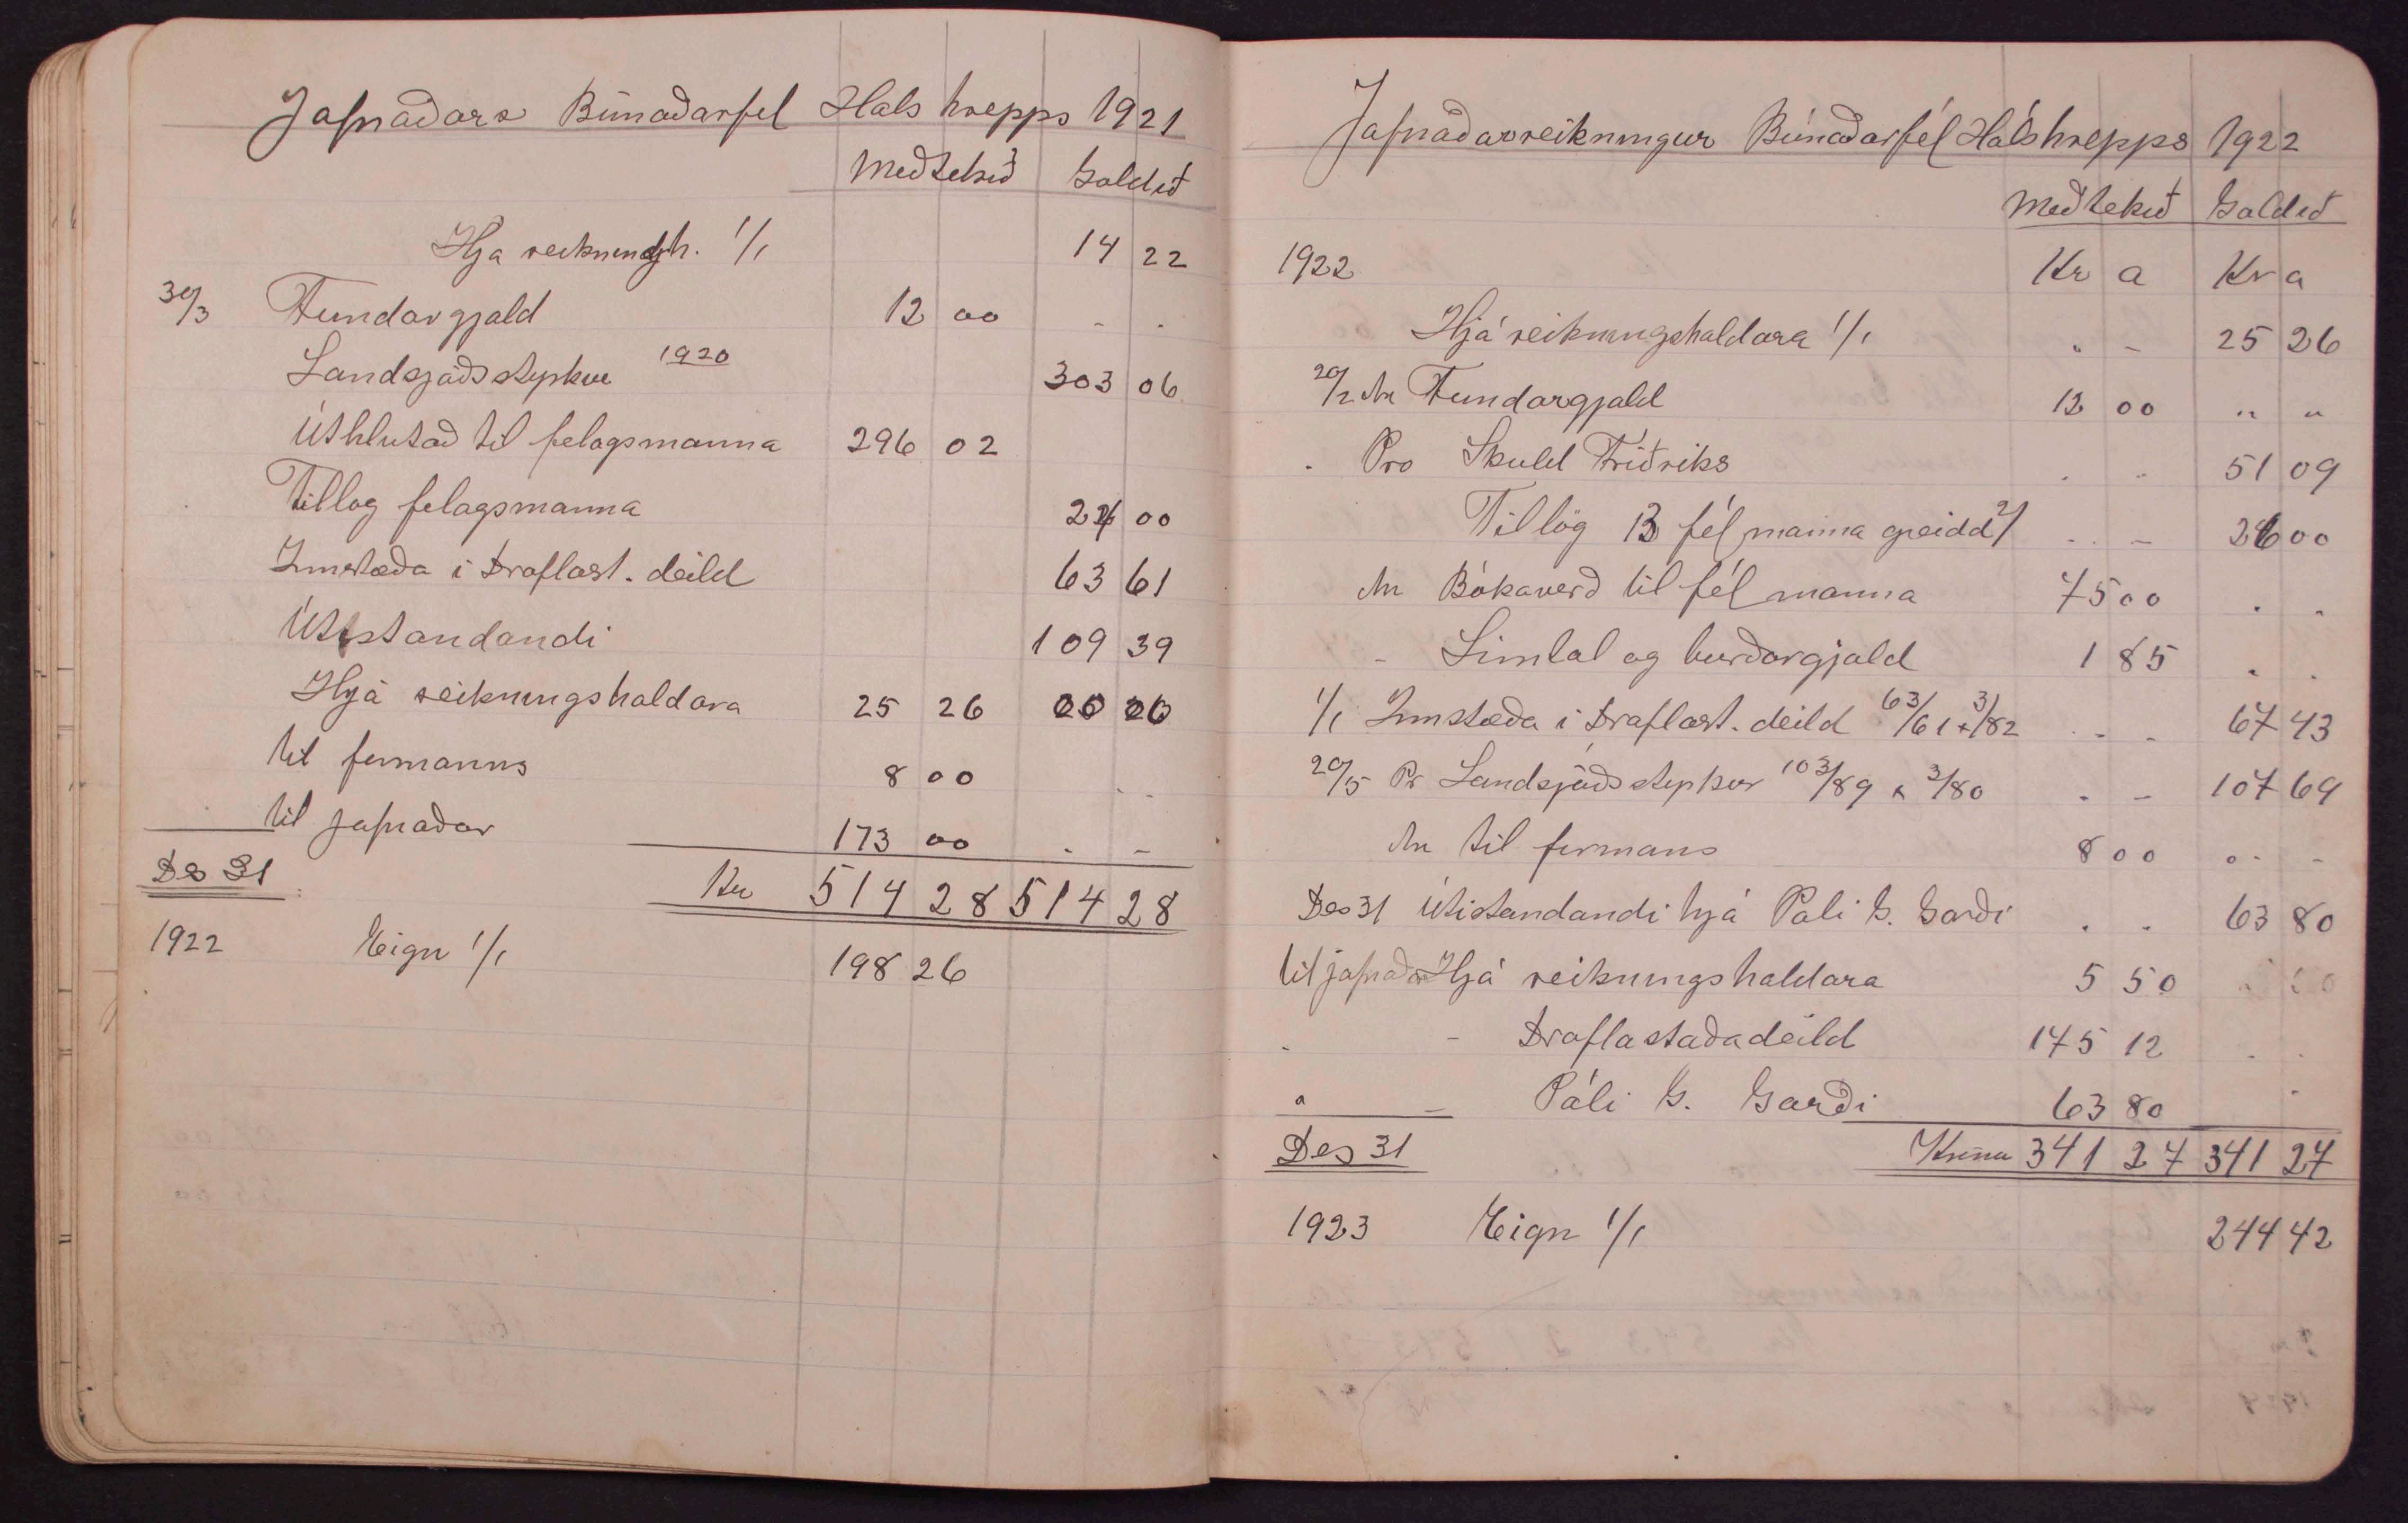 Jafnaðarr Búnaðarfel Hals hrepps 1921
Meðtekið Goldið
Hja reikningsh. 1/1 14 22
30/3 Fundargjald 12 00 - -
Landsjóðsstyrkur 1920 303 06
Úthlutað til felagsmanna 296 02
Tillog felagsmanna 24 00
Innstæða i Draflast. deild 63 61
Útistandandi 109 39
Hjá reikningshaldara 25 26
til firmanns 8 00 - -
til jafnaðar 173 00 - -
Des 31 Kr 514 28 514 28
1922 Eign 1/1 198 26
Jafnaðarreikningur Búnaðarfél Hálshrepps 1922
Meðtekið Goldið
1922 Kr a Kr a
Hjá reikningshaldara 1/1 " - 25 26
20/2 An Fundargjald 12 00 " "
- Pro Skuld Friðriks - - 51 09
Tillög 13 fél manna greidd - - 26 00
An Bókaverð til fél manna 75 00 - -
- Símtal og burðargjald 1 85 - -
1/1 Innstæða i Draflast. deild 63/61 + 3/82 - - 67 43
20/5 Pr Landsjóðsstyrkur 103/89 + 3/80 - - 107 69
An til firmans 8 00 - -
Des 31 Útistandandi hjá Páli G. Garði - - 63 80
til jafnaðar Hjá reikningshaldara 5 50
- - Draflastaðadeild 175 12 - -
" - Páli G. Garði 63 80 -
Des 31 Krónur 341 27 341 27
1923 Eign 1/1 244 42